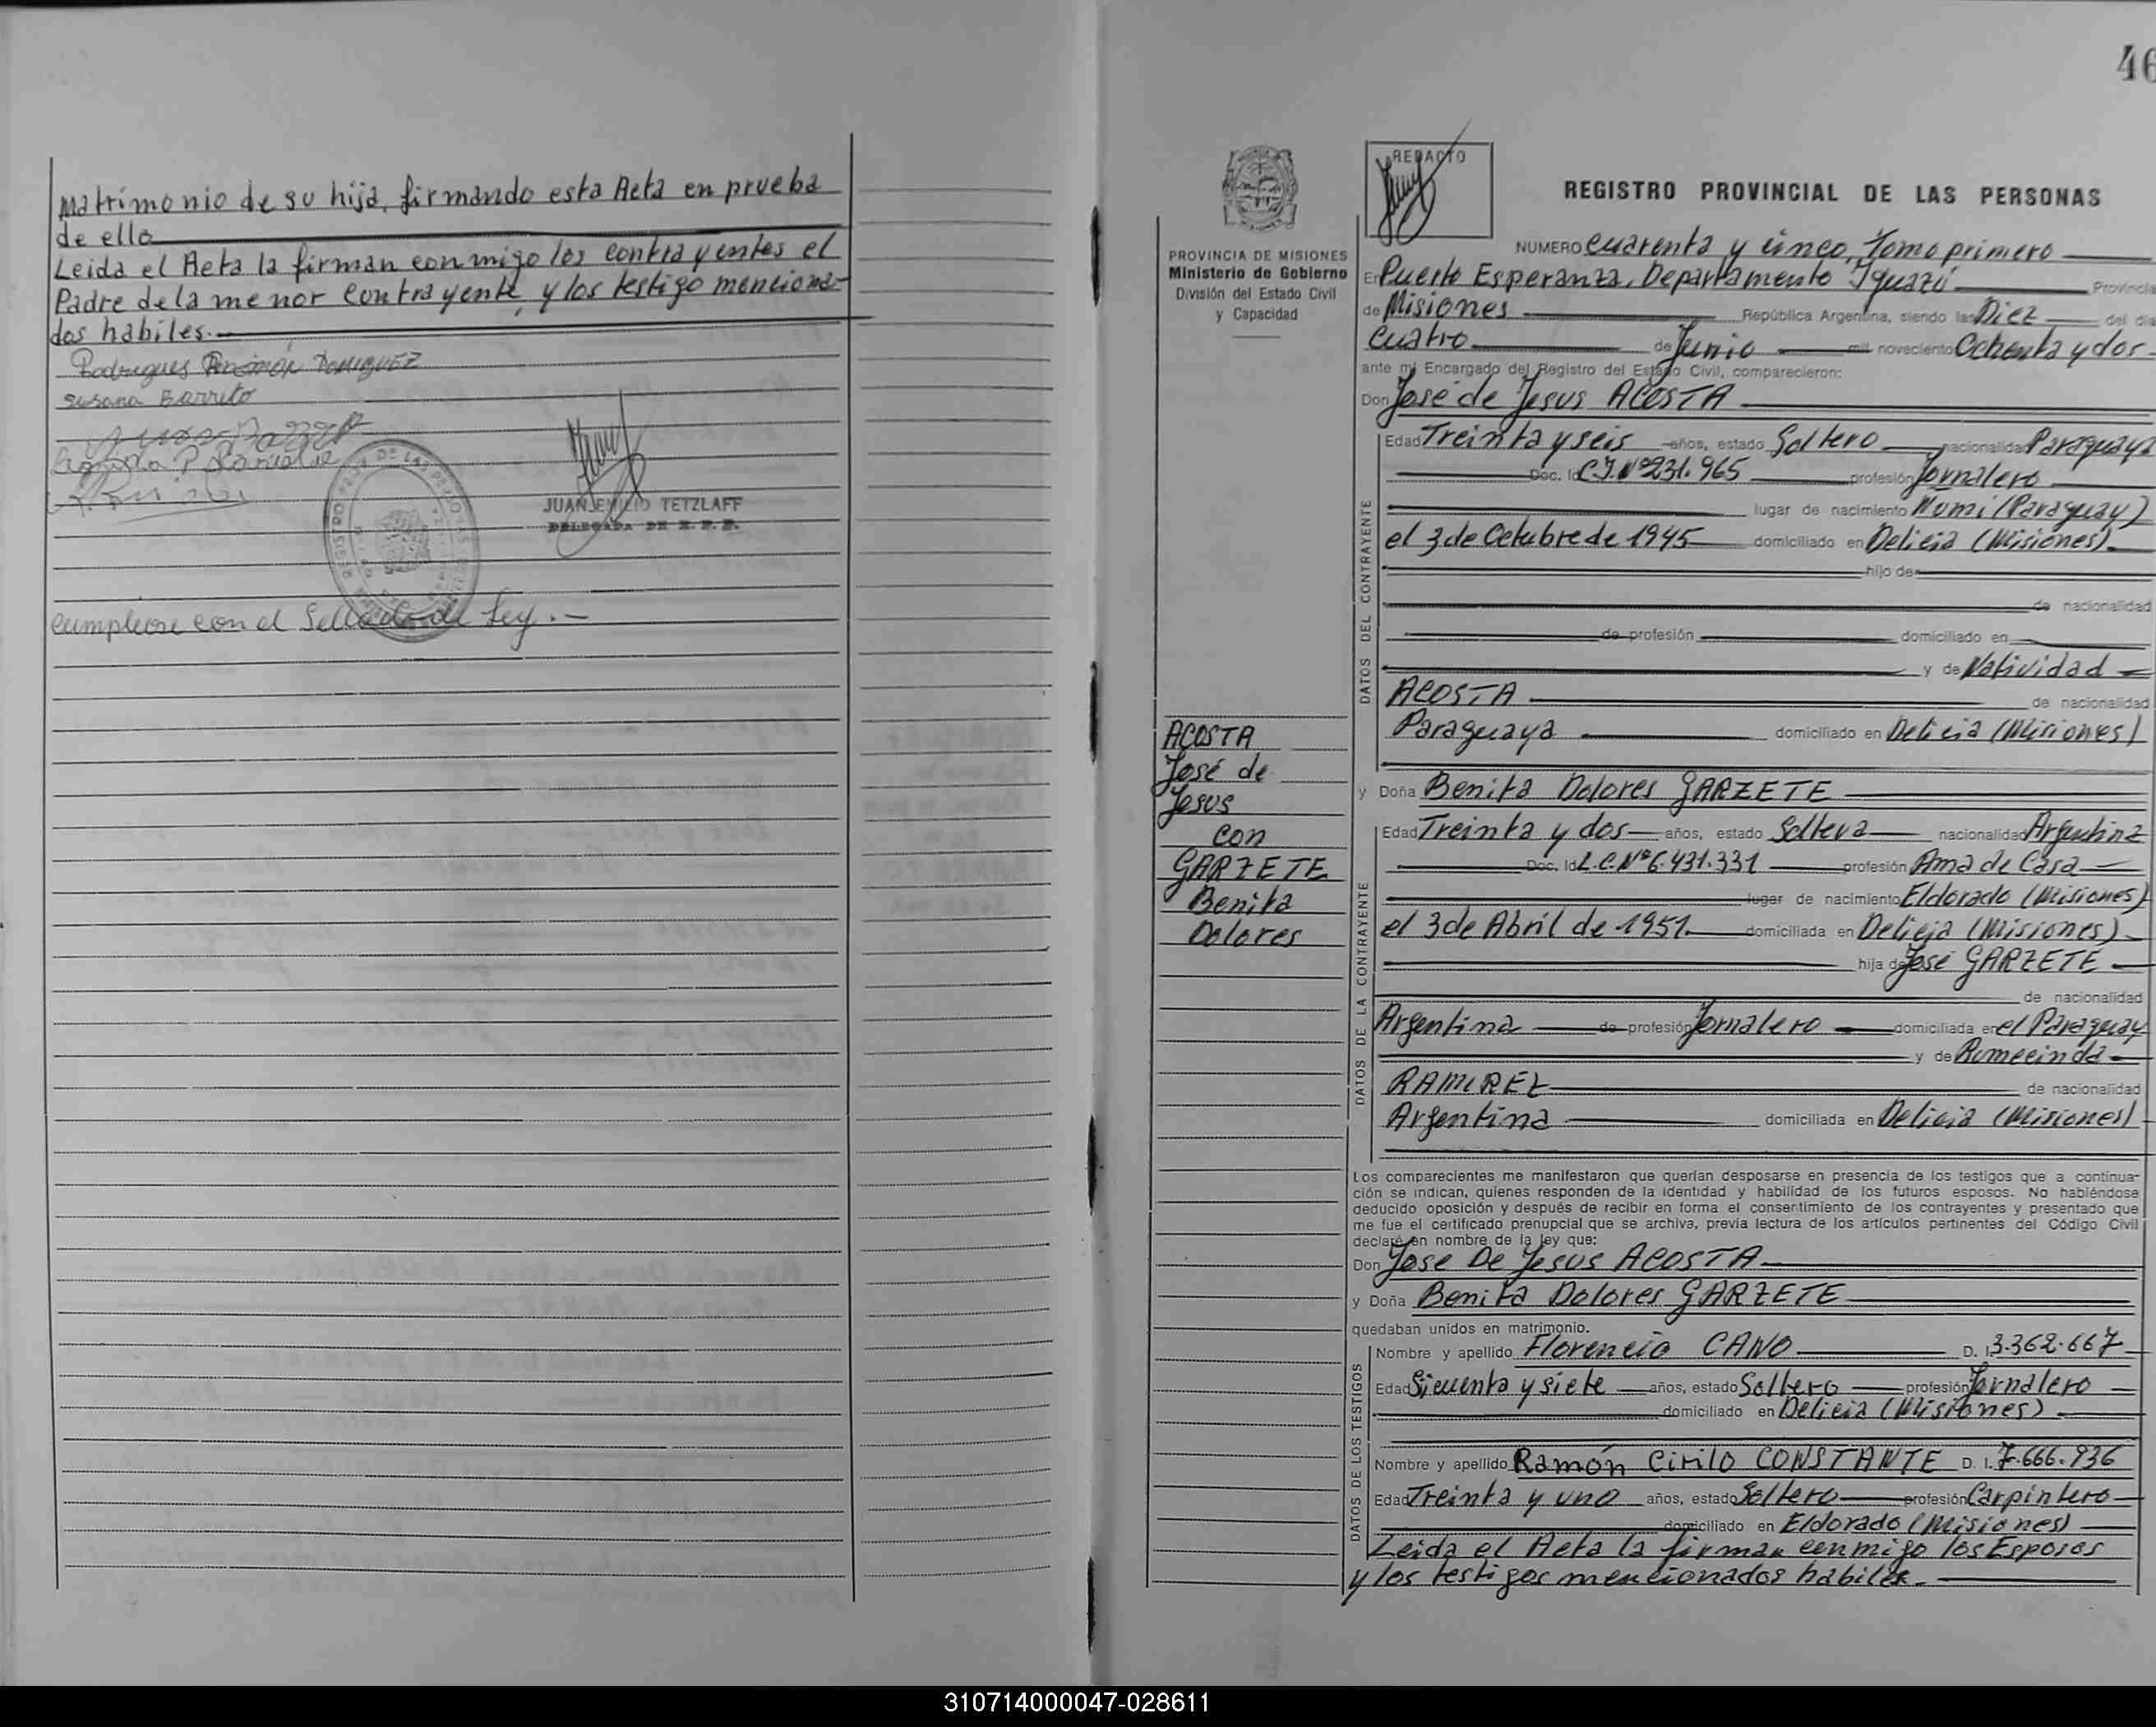 Matrimonio de su hija, firmando esta Acta en prueba
de ello
Leida el Acta la firman conmigo los contrayentes el
Padre de la menor contrayente, y los testigo menciona-
dos habiles.-
Rodrigues DOMIGUEZ
Susana Barreto
JUAN EMILIO TETZLAFF
DELEGADA DE R. P. P.
Cumplese con el Sellado de Ley.-
46
REDACTO
REGISTRO PROVINCIAL DE LAS PERSONAS
PROVINCIA DE MISIONES
Ministerio de Gobierno
División del Estado Civil
y Capacidad
ACOSTA
José de
Jesus
con
GARZETE
Benita
Dolores
NUMERO Cuarenta y cinco, Tomo primero
En Puerto Esperanza, Departamento Iguazú Provincia
de Misiones República Argentina, siendo las Diez del día
Cuatro de Junio mil noveciento Ochenta y dos
ante mí Encargado del Registro del Estado Civil, comparecieron:
Don José de Jesus ACOSTA
DATOS DEL CONTRAYENTE
Edad Treinta y seis años, estado Soltero nacionalidad Paraguay.
Doc. Id. C.I. Nº 231.965 profesión Jornalero
lugar de nacimiento Numi (Paraguay)
el 3 de Octubre de 1945 domiciliado en Delicia (Misiones)
hijo de
de nacionalidad
de profesión domiciliado en
y de Natividad
ACOSTA de nacionalidad
Paraguaya domiciliado en Delicia (Misiones)
y Doña Benita Dolores GARZETE
DATOS DE LA CONTRAYENTE
Edad Treinta y dos años, estado Soltera nacionalidad Argentina
Doc. Id. L.C. Nº 6.431.331 profesión Ama de Casa
lugar de nacimiento Eldorado (Misiones)
el 3 de Abril de 1951. domiciliada en Delicia (Misiones)
hija de José GARZETE
de nacionalidad
Argentina de profesión Jornalero domiciliada en el Paraguay
y de Rumecinda
RAMIREZ de nacionalidad
Argentina domiciliada en Delicia (Misiones)
Los comparecientes me manifestaron que querían desposarse en presencia de los testigos que a continua-
ción se indican, quienes responden de la identidad y habilidad de los futuros esposos. No habiéndose
deducido oposición y después de recibir en forma el consentimiento de los contrayentes y presentado que
me fue el certificado prenupcial que se archiva, previa lectura de los artículos pertinentes del Código Civil
declaré en nombre de la ley que:
Don Jose De Jesus ACOSTA
y Doña Benita Dolores GARZETE
quedaban unidos en matrimonio.
DATOS DE LOS TESTIGOS
Nombre y apellido Florencio CANO D. I. 3.362.667
Edad Sicuenta y siete años, estado Soltero profesión Jornalero
domiciliado en Delicia (Misiones)
Nombre y apellido Ramón Cirilo CONSTANTE D. I. 7.666.936
Edad Treinta y uno años, estado Soltero profesión Carpintero
domiciliado en Eldorado (Misiones)
Leida el Acta la firman conmigo los Esposos
y los testigos mencionados habiles.
310714000047-028611